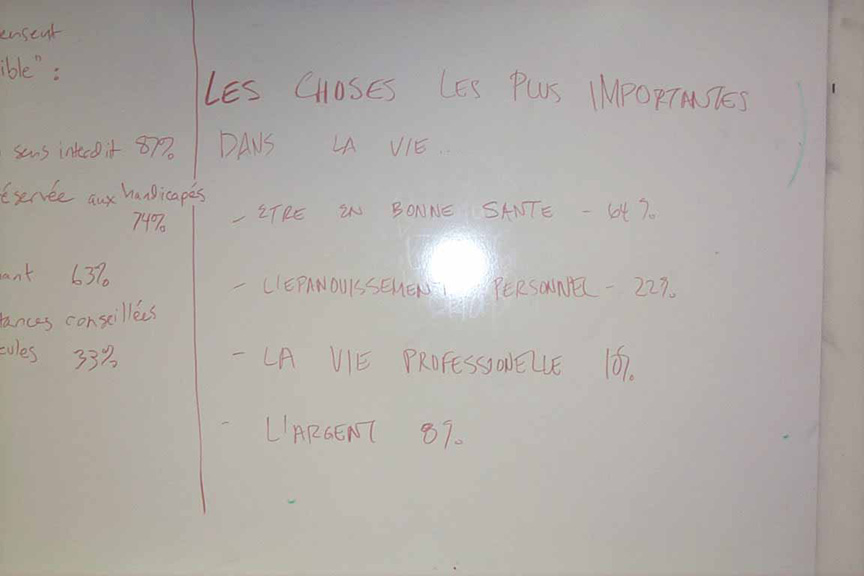 ensent
ible" :
sens interdit 87%
éservée aux handicapés
74%
ant 63%
tances conseillées
cules 33%
LES CHOSES LES PLUS IMPORTANTES
DANS LA VIE..
- ETRE EN BONNE SANTE - 64%
- L'EPANOUISSEMENT PERSONNEL - 22%
- LA VIE PROFESSIONELLE 10%
- L'ARGENT 8%